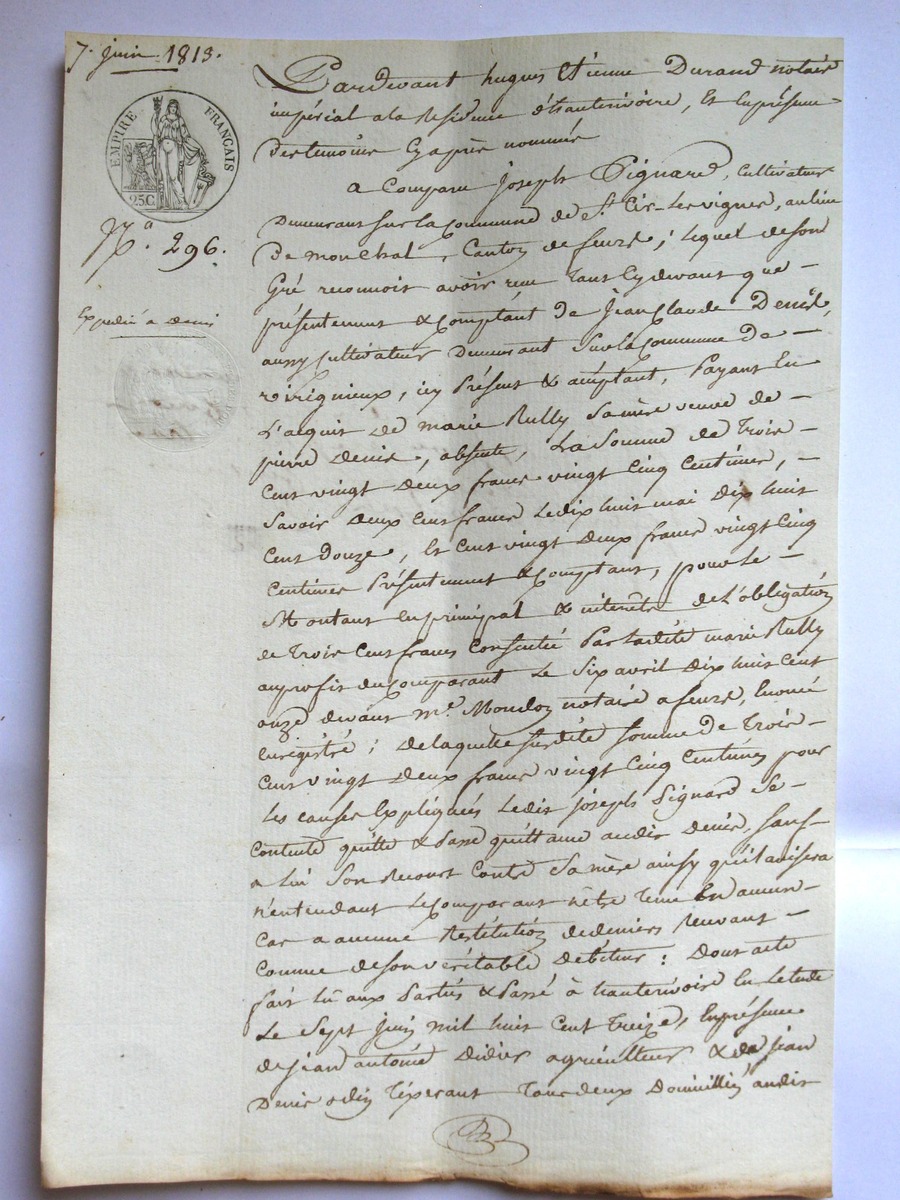 7. juin 1813.
EMPIRE FRANÇAIS
25C
N.º 296.
Expédié a denis
Pardevant hugues Etienne Durand notaire
impérial a la Residence d'hauterivoire, Et En présence
des temoins Cy après nommés
a Comparu Joseph Pignard, Cultivateur
Demeurant sur la Commune de St. Cir-les vignes, au lieu
De monchal, Canton de feurs; lequel de son
Gré reconnois avoir reçu tant Cy devant que
présentement & Comptant de Jean Claude Denis,
aussy Cultivateur Demeurant sur la Commune de
virigneux, icy Présent & acceptant, Payant En
l'acquit de marie Rully sa mère veuve de
pierre denis, absente, La Somme de Trois
Cent vingt deux francs vingt Cinq Centimes,
Savoir deux Cent francs Le dix huit mai dix huit
Cent Douze, Et Cent vingt deux francs vingt Cinq
Centimes Présentement & Comptant, pour le
Montant En principal & interêts de L'obligation
de Trois Cent francs Consentie Par ladite marie Rully
au profit du Comparant Le Six avril Dix huit Cent
onze devant me. Mondon notaire a feurs,
Enrégistré; de laquelle susdite somme de Trois
Cent vingt deux francs vingt Cinq Centimes pour
les causes Expliquées Ledit Joseph Pignard Se
Contente quitte & Passe quittance audit Denis, sauf
a lui Son Recours Contre Sa mère ainsy qu'il avisera
n'entendant le Comparant être Tenu En aucun
Cas a aucune Restitution de deniers Recevant
Comme de son véritable débiteur: Dont acte
fait lû aux Parties & Passé à hauterivoire En Letude
Le Sept juin mil huit Cent Treize, En présence
de jean antoine Didier agriculteur & de jean
Denis odin Tisserant Tous deux Domiciliés audit